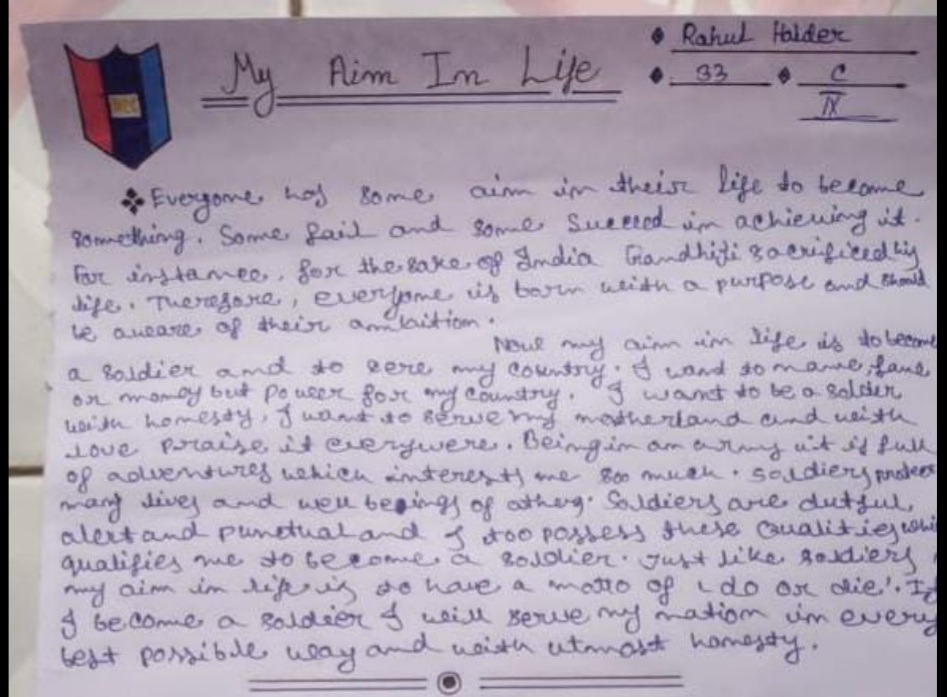 My Aim In Life
Rahul Halder
33 C
IX
Everyone has some aim in their life to become
something. Some fail and some Succeed in achieving it.
For instance, for the sake of India Gandhiji sacrificed his
life. Therefore, everyone is born with a purpose and should
be aware of their ambition.
Now my aim in life is to become
a soldier and to sere my country. I want to mame, fame
or money but power for my country. I want to be a solder
with homesty, I want to serve my motherland and with
love praise it everywere. Being in an army it is full
of adventures which interests me soo much. soldiers protect
many lives and well beings of others. Soldiers are dutful,
alert and punctual and I too possess these Qualities whi
qualifies me to become a soldier. Just like soldiers,
my aim in life is to have a motto of 'do or die'. If
I become a soldier I will serve my nation in every
best possible way and with utmost homesty.